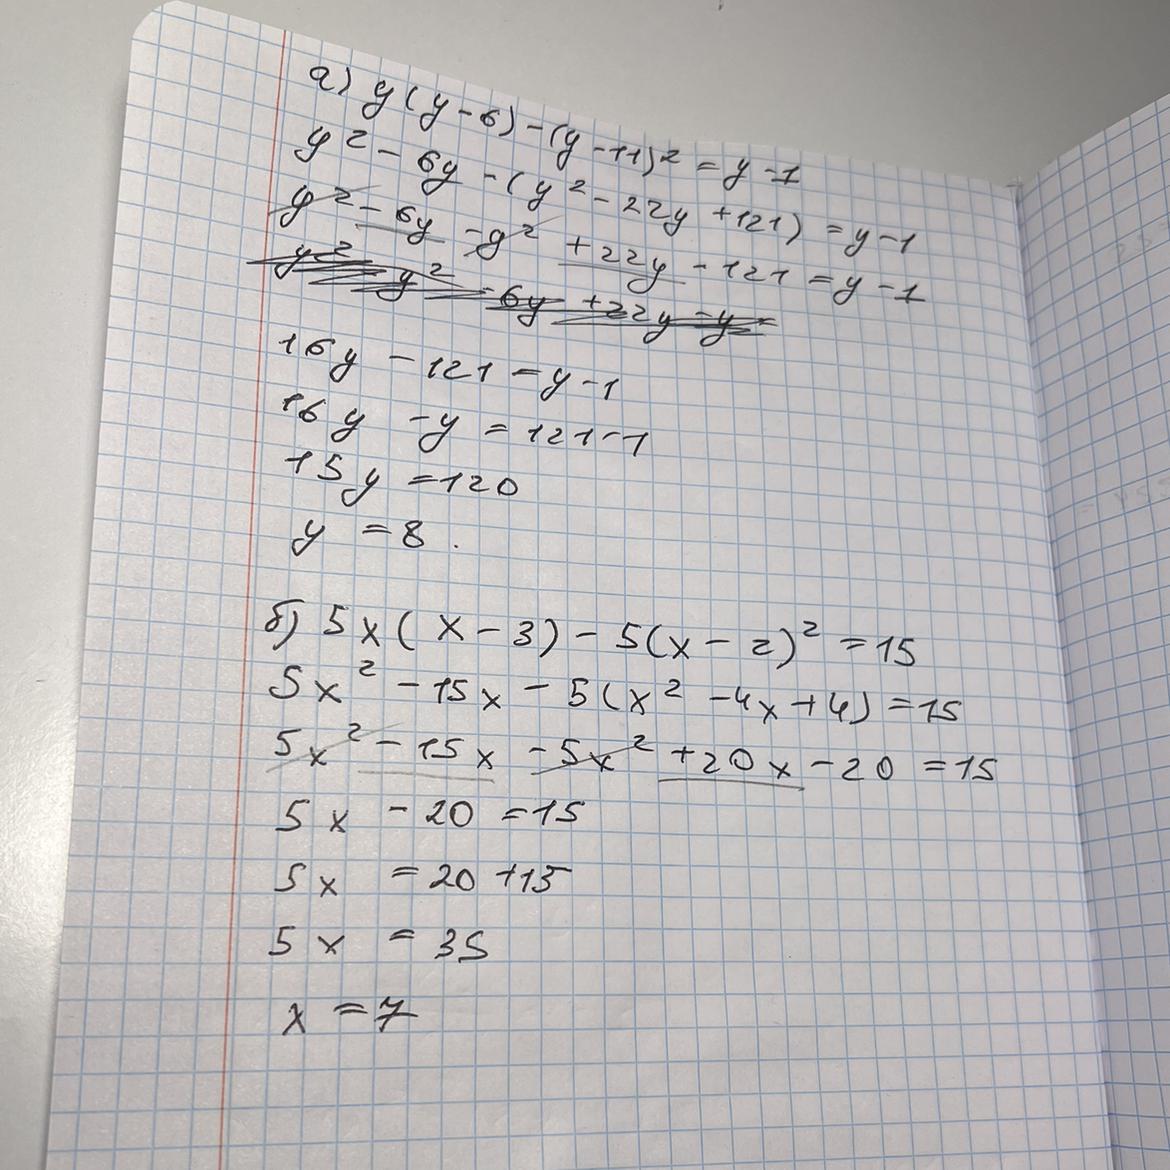 а) y(y-6)-(y-11)² = y-1
y² - 6y - (y² - 22y + 121) = y - 1
y² - 6y - y² + 22y - 121 = y - 1
16y - 121 = y - 1
16y - y = 121 - 1
15y = 120
y = 8.
б) 5x(x-3) - 5(x-2)² = 15
5x² - 15x - 5(x² - 4x + 4) = 15
5x² - 15x - 5x² + 20x - 20 = 15
5x - 20 = 15
5x = 20 + 15
5x = 35
x = 7